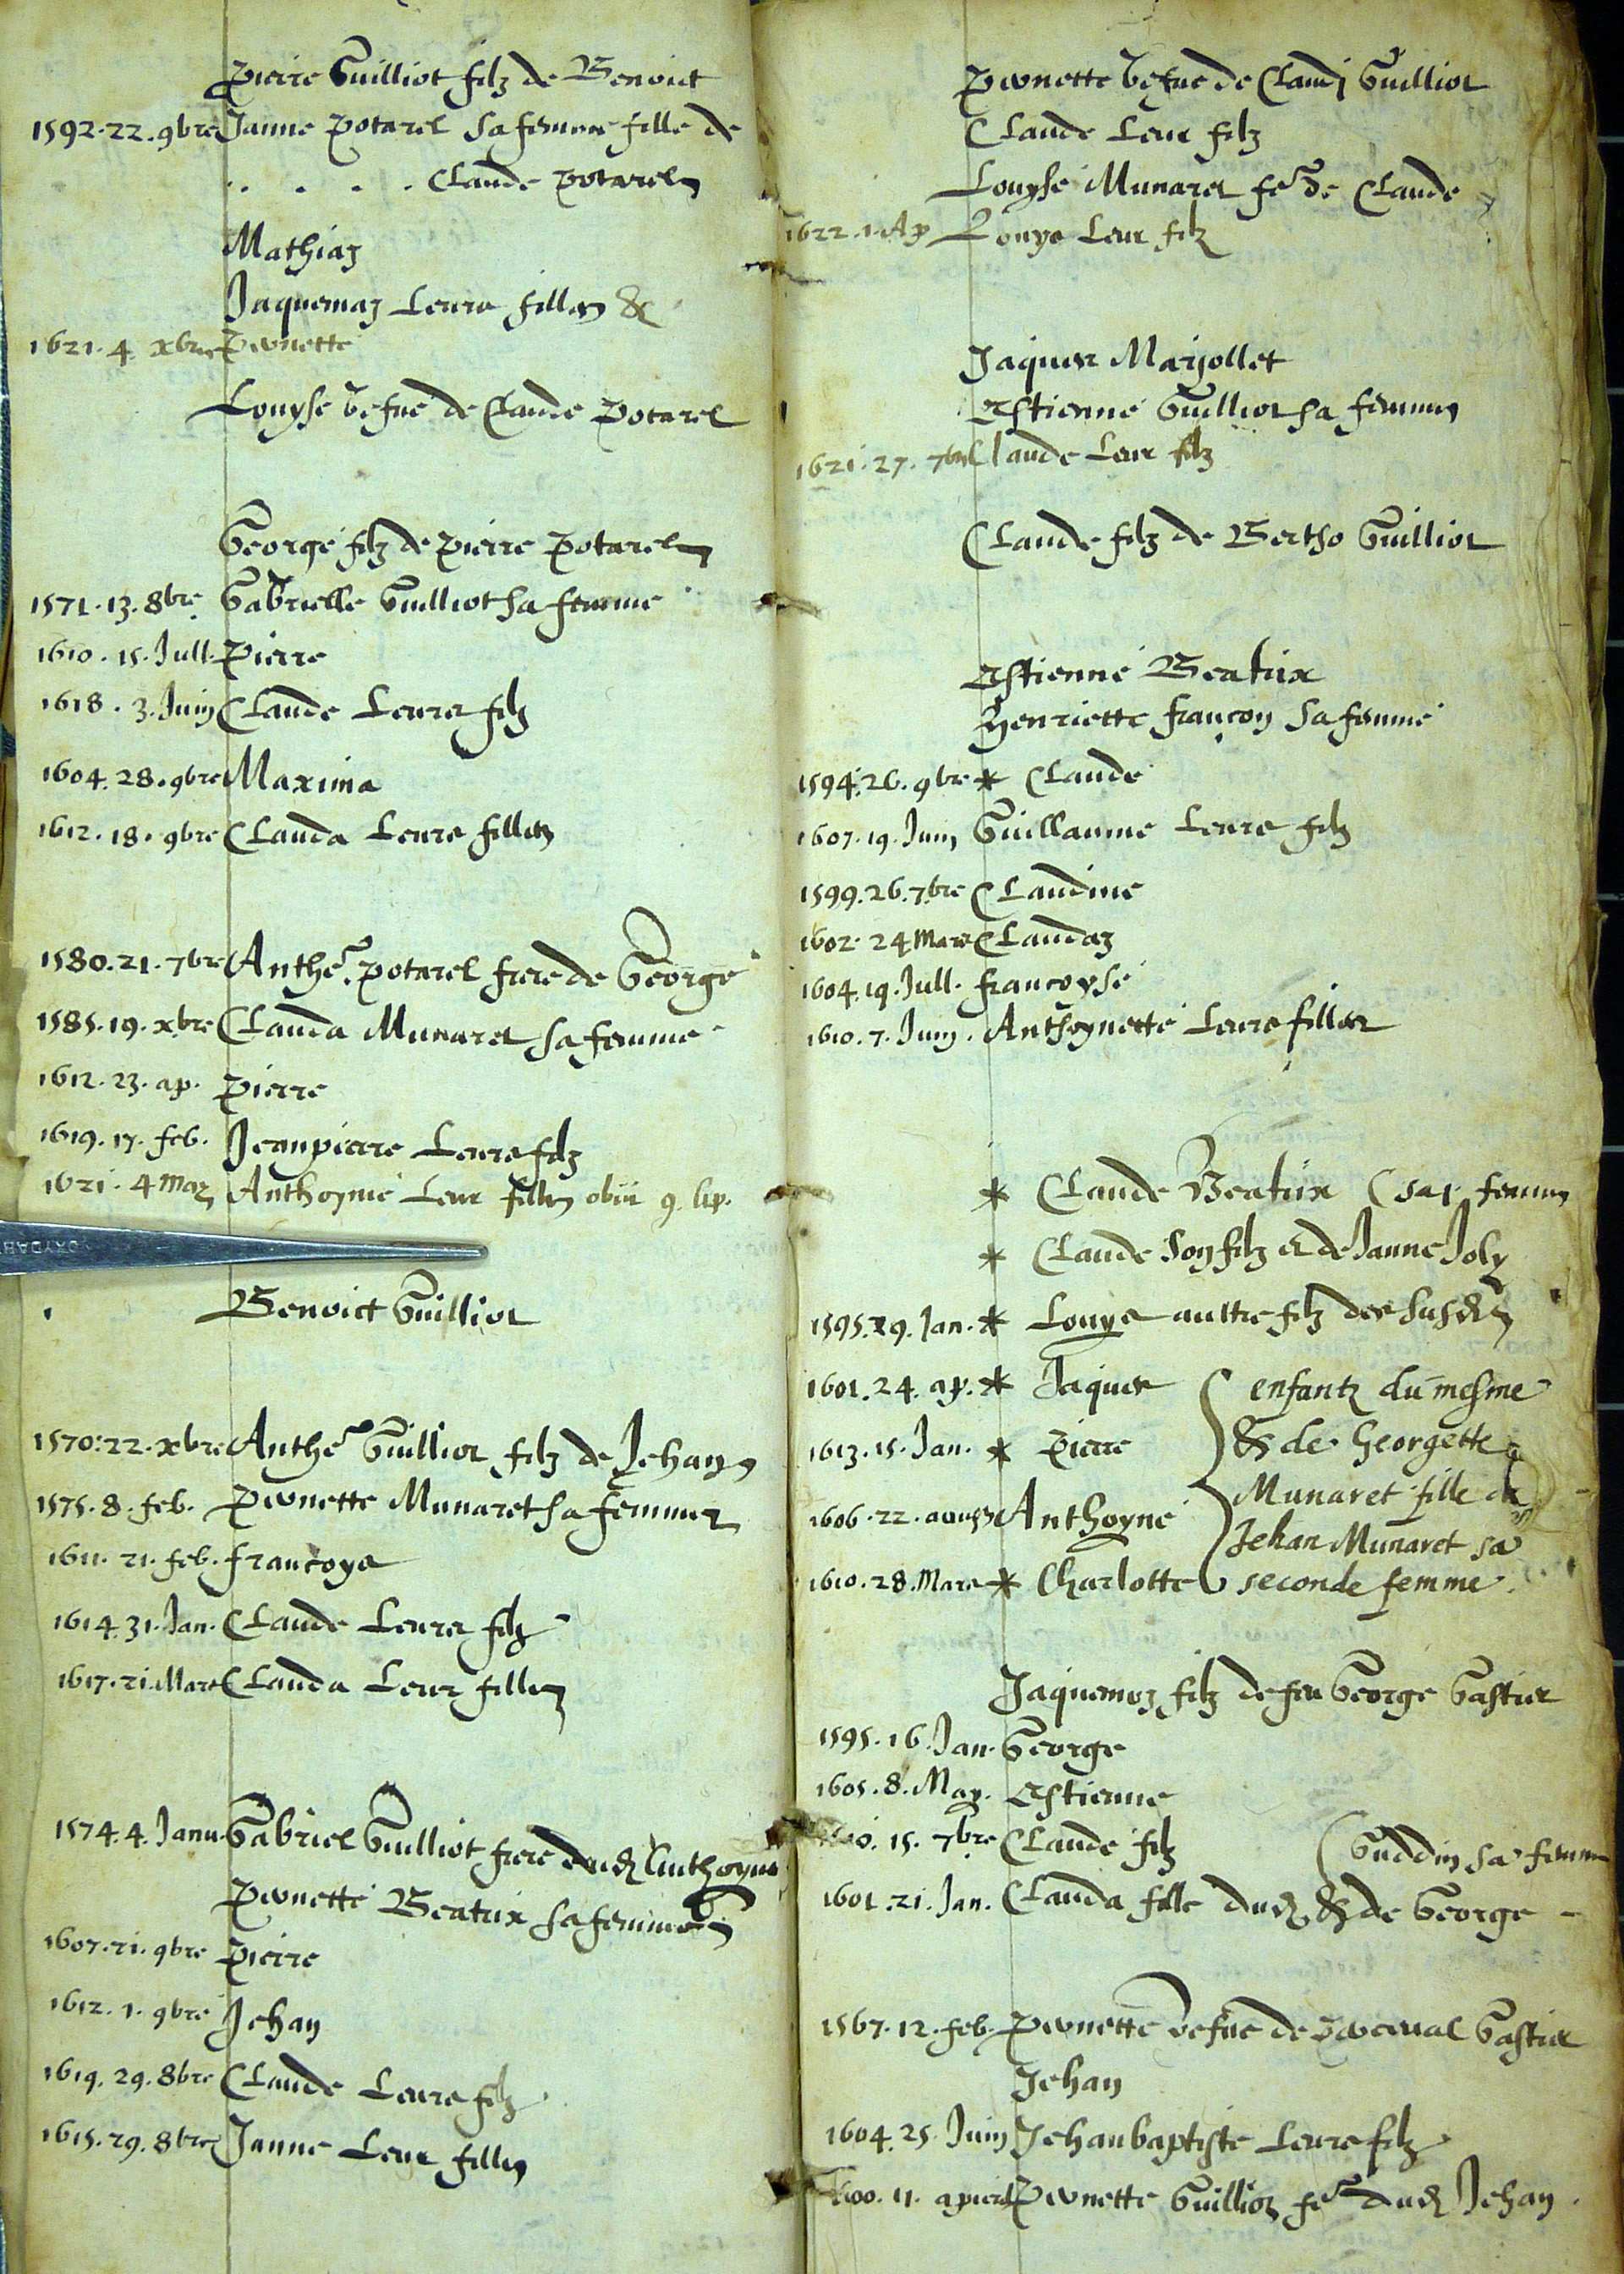 Pierre Guilliot filz de Benoict
1592.22.9bre Janne Potarel sa femme fille de
. . . . Claude Potarel
Mathiaz
Jaquemaz leurs filles &
1621.4 xbre Pernette
Louyse vefue de Claude Potarel
George filz de Pierre Potarel
1571.13.8bre Gabrielle Guilliot sa femme
1610.15.Jull. Pierre
1618.3.Juin Claude leurs filz
1604.28.9bre Maxima
1612.18.9bre Clauda leurs filles
1580.21.7bre Anthe. Potarel frere de George
1585.19.xbre Clauda Munaret sa femme
1612.23.ap. Pierre
1619.17.feb. Jeanpierre leurs filz
1621.4 Anthoyne leur obiit 9.
OXYDAB
Benoict Guilliot
1570.22.xbre Anthe Guilliot filz de Jehan
1575.8.feb. Pernette Munaret sa femme
1611.21.feb. Francoys
1614.31.Jan. Claude leurs filz
1617.21.Mars Clauda leur fille
1574.4.Janu. Gabriel Guilliot frere dud Anthoyne
Pernette Beatrix sa femme
1607.21.9bre Pierre
1612.1.9bre Jehan
1619.29.8bre Claude leurs filz
1615.29.8bre Janne leur fille
Pernette vefue de Claude Guilliot
Claude leur filz
Louyse Munaret fe de Claude
1622.1.Ap Louys leur filz
Jaques Marjollet
Estienne Guilliot sa femme
1621.27.7bre Claude leur filz
Claude filz de Bertho Guilliot
Estienne Beatrix
Henriette Françon sa femme
1594.26.9bre * Claude
1607.19.Juin Guillaume leurs filz
1599.26.7bre Claudine
1602.24 Mars Claudaz
1604.19.Jull. Francoyse
1610.7.Juin. Anthoynette leurs filles
* Claude Beatrix ( sa femme
* Claude son filz & de Janne Joly
1595.29.Jan. * Louys aultre filz des susd
1601.24.ap. * Jaques { enfantz du mesme
1613.15.Jan. * Pierre & de Georgette
1606.22.aoust Anthoyne Munaret fille de
Jehan Munaret sa
1610.28.Mars * Charlotte seconde femme.
Jaquemoz filz de feu George Gastier
1595.16.Jan. George
1605.8.May. Estienne
15.7bre Claude filz ( Guddin sa femme
1601.21.Jan. Clauda fille dud & de George
1567.12.feb. Pernette vefue de Gastier
Jehan
1604.25.Juin Jehanbaptiste leurs filz
11. Pernette Guillioz fe dud Jehan.